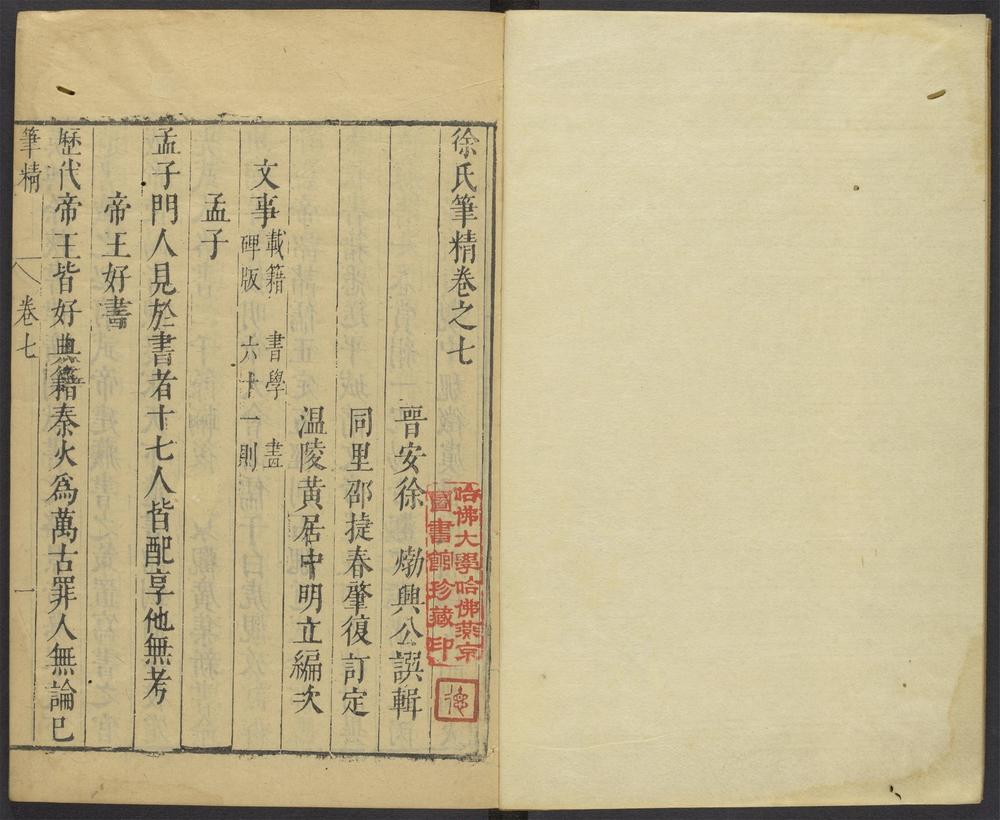 徐氏筆精卷之七
晉安徐𤊹興公譔輯
同里邵捷春肇復訂定
温陵黃居中明立編次
文事
載籍 書學 畫
碑版 六十一則
孟子
孟子門人見於書者十七人皆配享他無考
帝王好書
歷代帝王皆好典籍秦火爲萬古罪人無論已
筆精 卷七 一
哈佛大學哈佛燕京
圖書館珍藏印